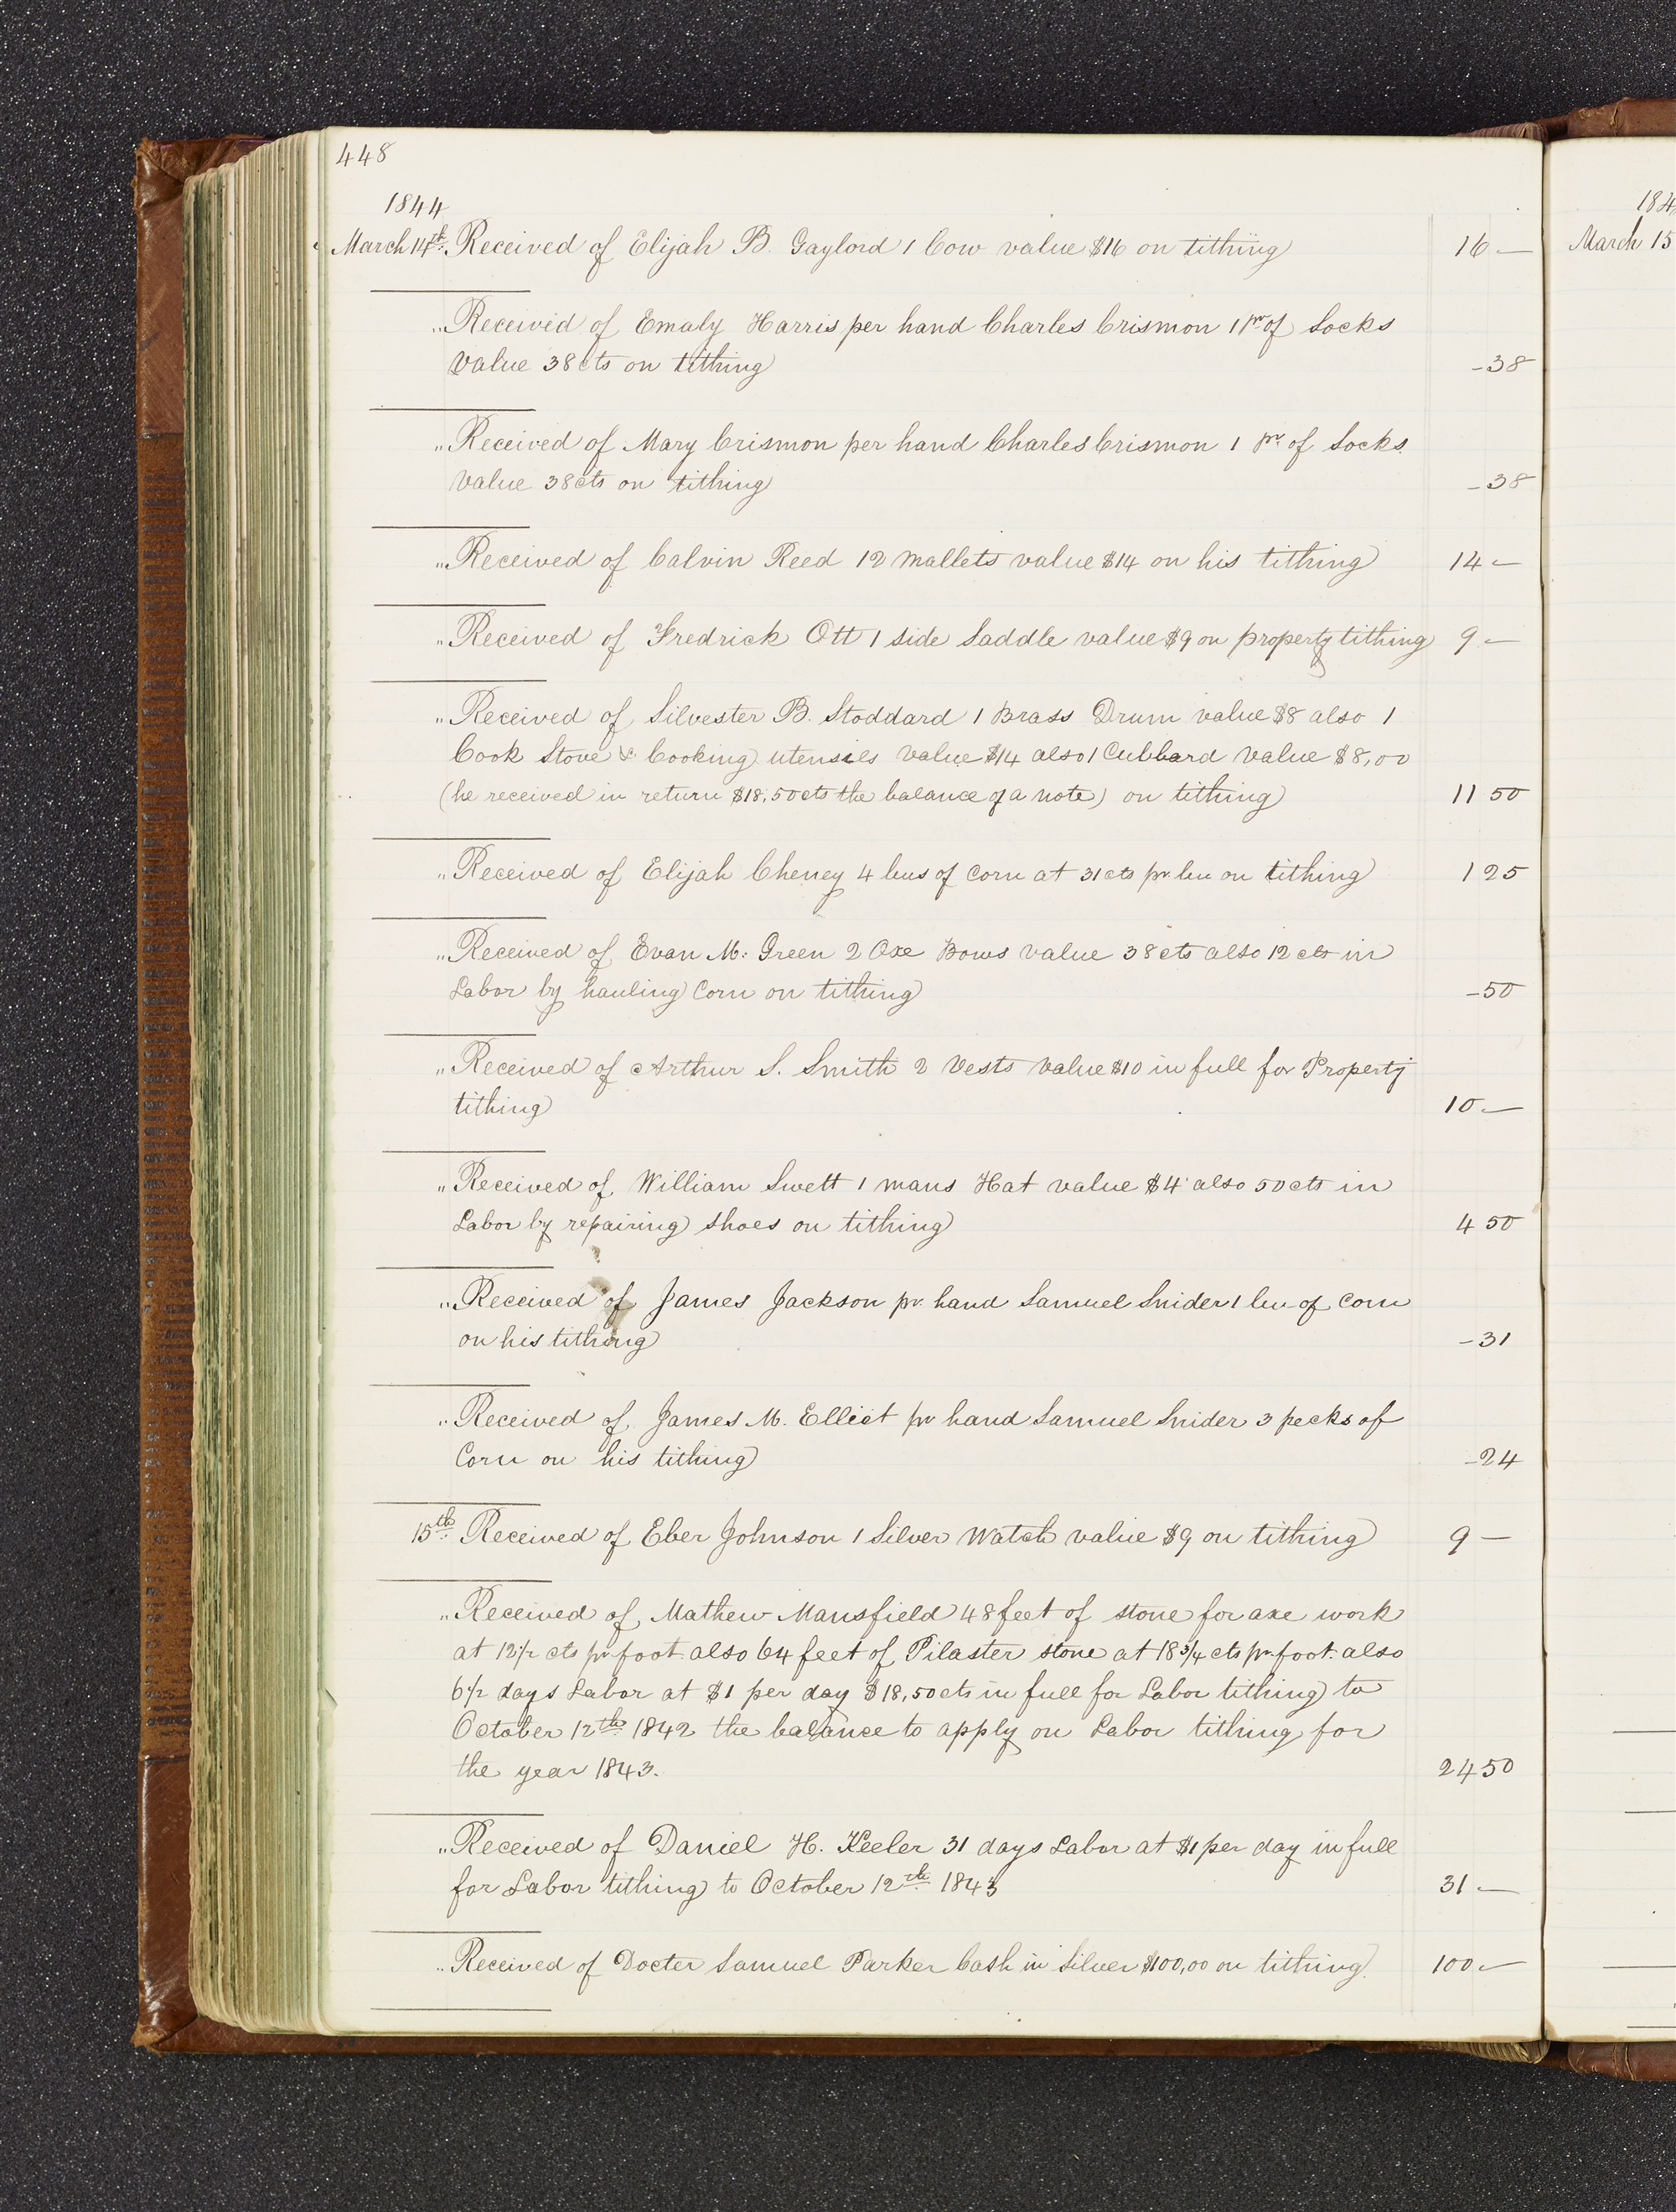 448
1844
March 14th: Received of Elijah B. Gaylord 1 Cow value $16 on tithing 16 —
" Received of Emaly Harris per hand Charles Crismon 1 pr of Socks
value 38 cts on tithing - 38
" Received of Mary Crismon per hand Charles Crismon 1 pr of Socks
value 38 cts on tithing - 38
" Received of Calvin Reed 12 Mallets value $14 on his tithing 14 —
" Received of Fredrick Ott 1 side Saddle value $9 on property tithing 9 —
" Received of Silvester B. Stoddard 1 Brass Drum value $8 also 1
Cook Stove & Cooking utensils value $14 also 1 Cubbard value $8,00
(he received in return $18,50 cts the balance of a note) on tithing 11 50
" Received of Elijah Cheney 4 bus of Corn at 31 cts pr bu on tithing 1 25
" Received of Evan M. Green 2 Oxe Bows value 38 cts also 12 cts in
Labor by hauling Corn on tithing - 50
" Received of Arthur S. Smith 2 Vests value $10 in full for Property
tithing 10 —
" Received of William Swett 1 mans Hat value $4 also 50 cts in
Labor by repairing shoes on tithing 4 50
" Received of James Jackson pr hand Samuel Snider 1 bu of Corn
on his tithing - 31
" Received of James M. Elliot pr hand Samuel Snider 3 pecks of
Corn on his tithing - 24
15th: Received of Eber Johnson 1 Silver Watch value $9 on tithing 9 —
" Received of Mathew Mansfield 48 feet of stone for axe work
at 12 1/2 cts pr foot also 64 feet of Pilaster stone at 18 3/4 cts pr foot. also
6 1/2 days Labor at $1 per day $18,50 cts in full for Labor tithing to
October 12th 1842 the balance to apply on Labor tithing for
the year 1843. 24 50
" Received of Daniel H. Keeler 31 days Labor at $1 per day in full
for Labor tithing to October 12th 1843 31 —
" Received of Docter Samuel Parker Cash in Silver $100,00 on tithing. 100 —
184
March 15